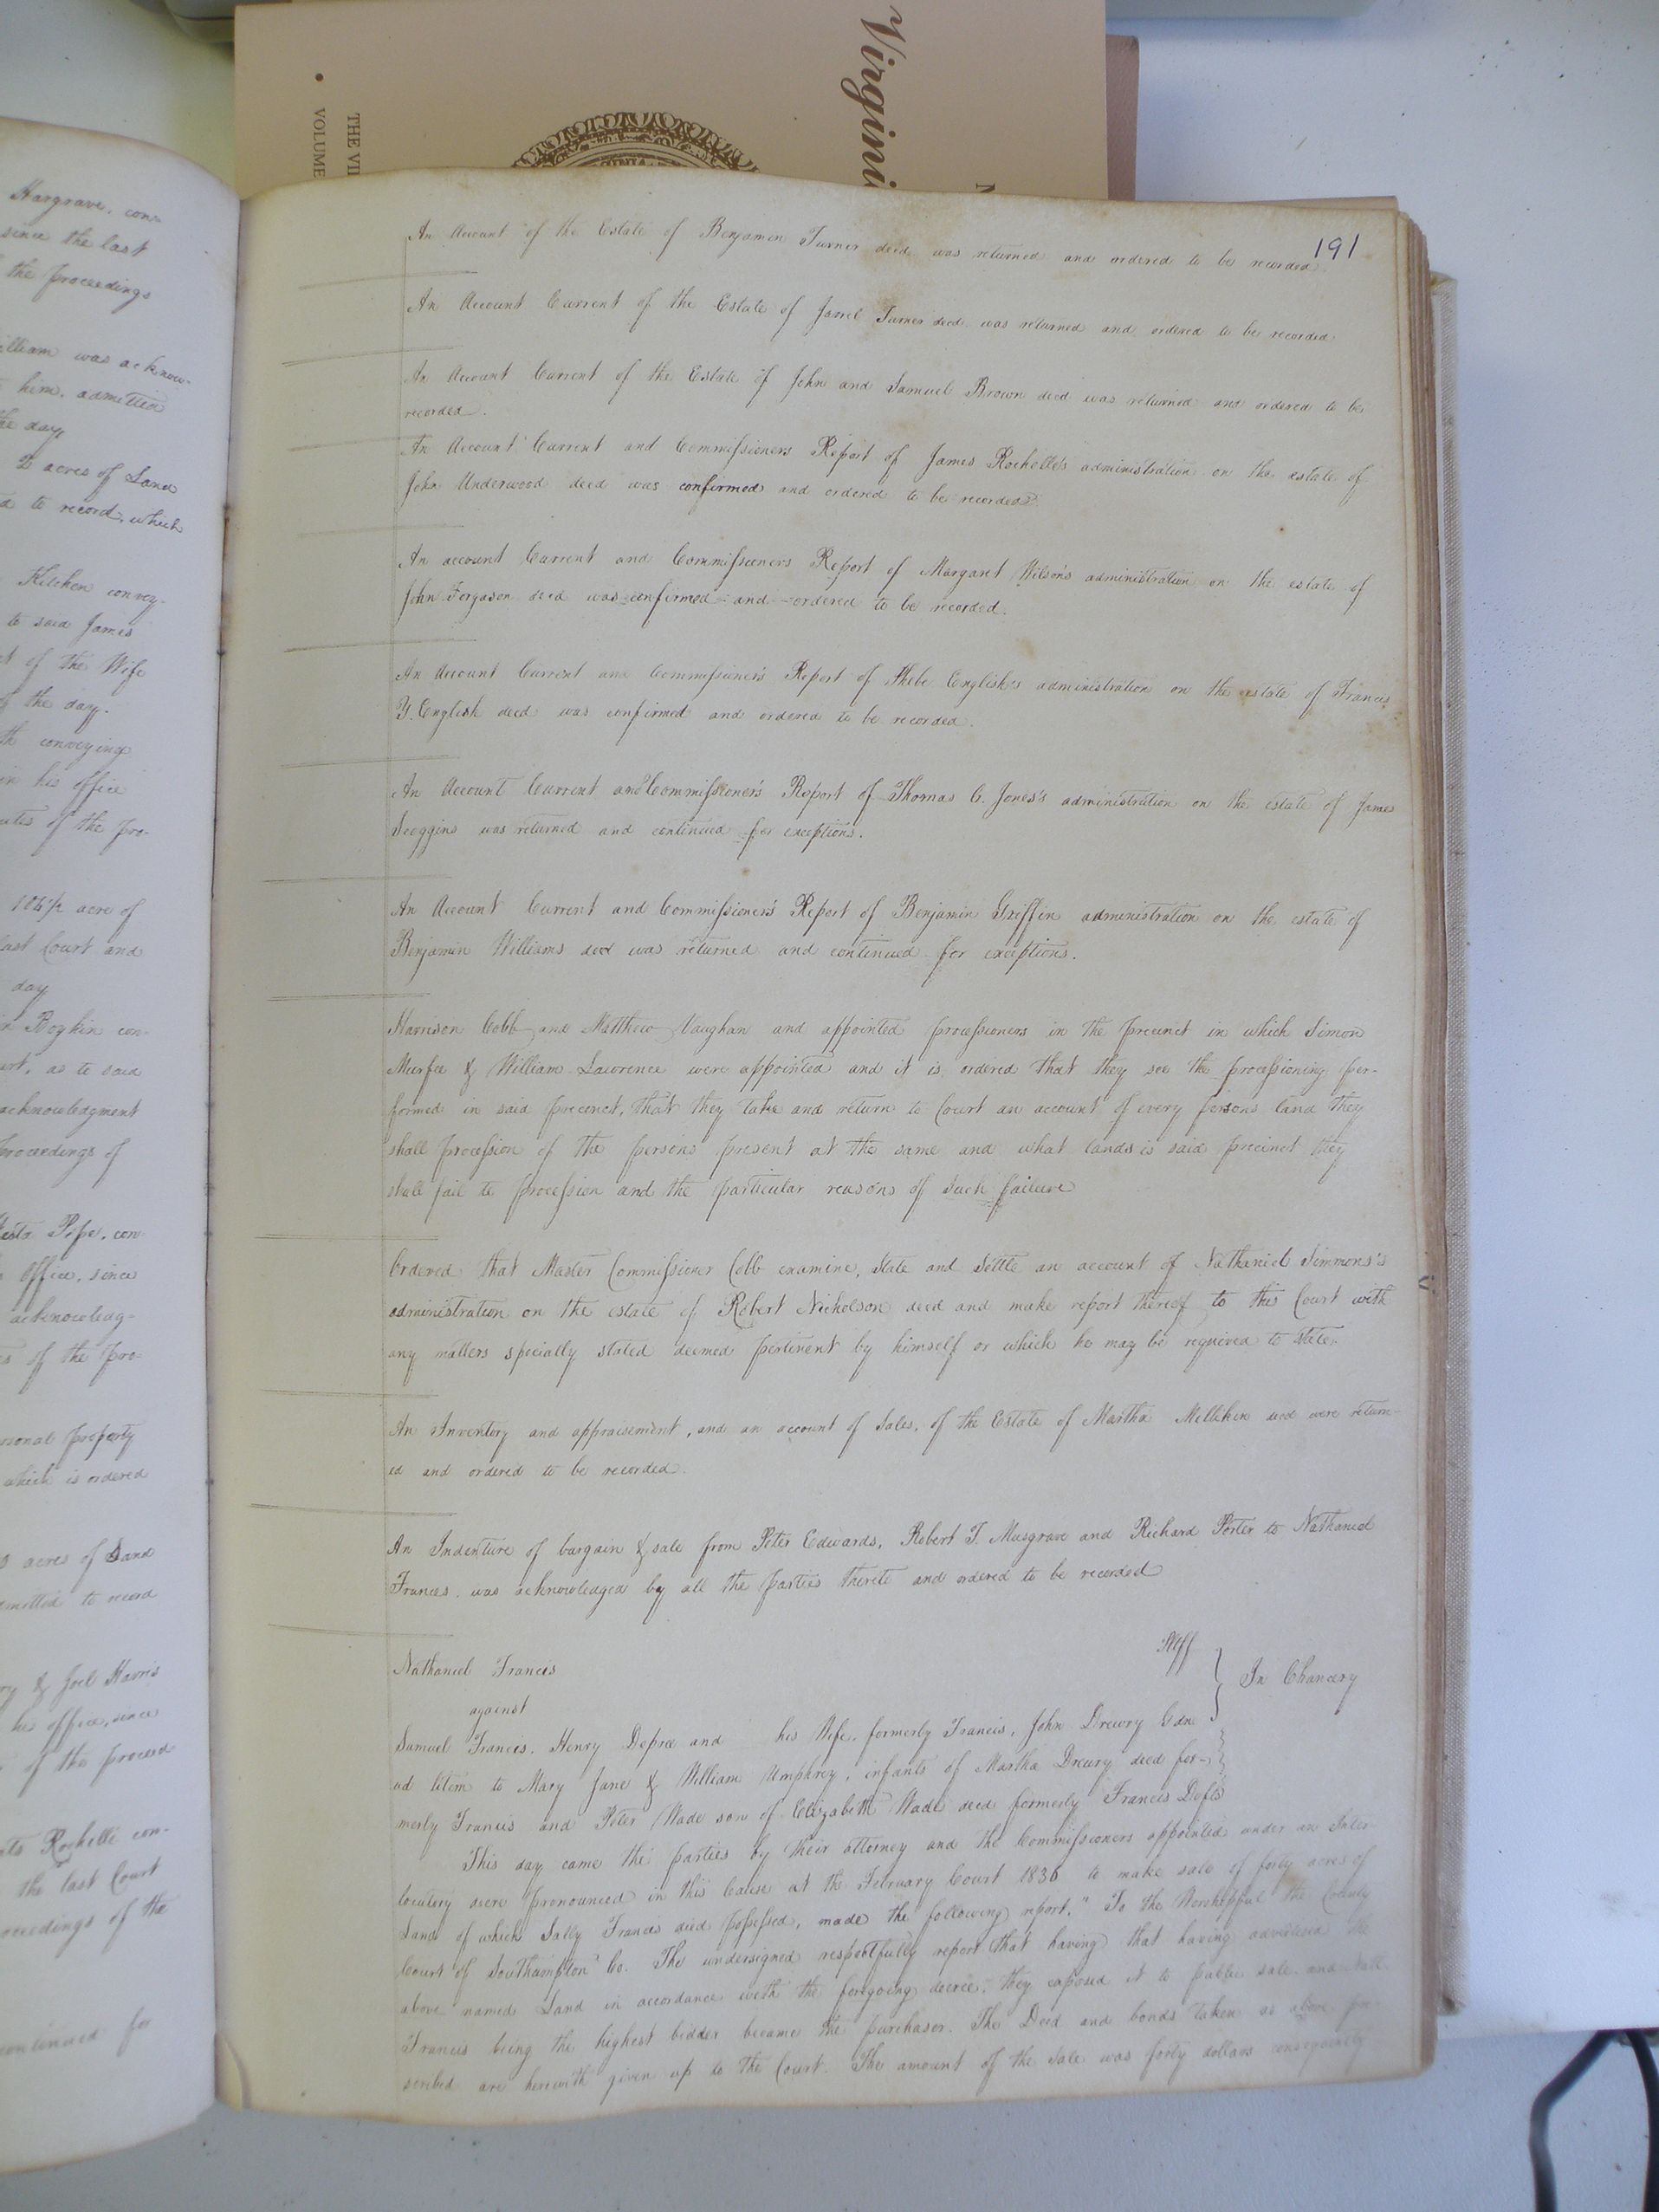 Virgini
THE VI
VOLUME
Hargrave, con-
since the last
the proceedings
illiam was acknow-
him, admitted
the day
2 acres of Land
to record, which
Kitchen convey-
to said James
of the Wife
of the day.
conveying
in his office
of the pro-
104 1/2 acre of
last Court and
day
Boykin con-
as to said
acknowledgment
proceedings of
Pope, con
office, since
acknowledg-
of the pro-
personal property
which is ordered
acres of Land
to record
& Joel Harris
his office, since
of the proceed
Rochelle con-
the last Court
proceedings of the
continued for
191
An Account of the Estate of Benjamin Turner decd was returned and ordered to be recorded.
An Account Current of the Estate of Jarrel Turner decd. was returned and ordered to be recorded
An Account Current of the Estate of John and Samuel Brown decd was returned and ordered to be
recorded.
An Account Current and Commissioners Report of James Rochelle's administration on the estate of
John Underwood decd was confirmed and ordered to be recorded
An account Current and Commissioners Report of Margaret Wilson's administration on the estate of
John Ferguson decd was confirmed - and - ordered to be recorded.
An Account Current and Commissioner's Report of Phebe English's administration on the estate of Francis
Y. English decd was confirmed and ordered to be recorded.
An Account Current and Commissioner's Report of Thomas C. Jones's administration on the estate of James
Scoggins was returned and continued for exceptions.
An Account Current and Commissioner's Report of Benjamin Griffin administration on the estate of
Benjamin Williams decd was returned and continued for exceptions.
Harrison Cobb and Matthew Vaughan and appointed processioners in the precinct in which Simon
Murfee & William Lawrence were appointed and it is ordered that they see the processioning per-
formed in said precinct, that they take and return to Court an account of every persons land they
shall procession of the persons present at the same and what lands is said precinct they
shall fail to procession and the particular reasons of such failure
Ordered that Master Commissioner Cobb examine, state and settle an account of Nathaniel Simmons's
administration on the estate of Robert Nicholson decd and make report thereof to this Court with
any matters specially stated deemed pertinent by himself or which he may be required to state.
An Inventory and appraisement, and an account of Sales, of the Estate of Martha Milliken decd were return-
ed and ordered to be recorded.
An Indenture of bargain & sale from Peter Edwards, Robert T. Musgrave and Richard Porter to Nathaniel
Francis was acknowledged by all the parties thereto and ordered to be recorded
Nathaniel Francis Plff
against
In Chancery
Samuel Francis, Henry Depree and his Wife, formerly Francis, John Drewry Gdn
ad litem to Mary Jane & William Umphrey, infants of Martha Drewry decd for-
merly Francis and Peter Wade son of Elizabeth Wade decd formerly Francis Defts
This day came the parties by their attorney and the Commissioners appointed under an Inter-
locutory decree pronounced in this Cause at the February Court 1836 to make sale of forty acres of
Land of which Sally Francis died possessed, made the following report. "To the Worshipful the County
Court of Southampton Co. The undersigned respectfully report that having that having advertised the
above named Land in accordance with the foregoing decree, they exposed it to public sale and
Francis being the highest bidder became the purchaser. The Deed and bonds taken as above pre
scribed are herewith given up to the Court. The amount of the Sale was forty dollars consequently